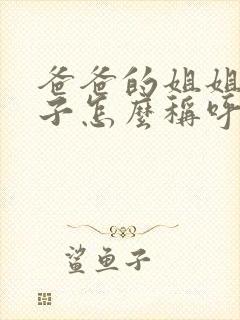 爸爸的姐姐
子怎麼稱呼
鯊鱼子